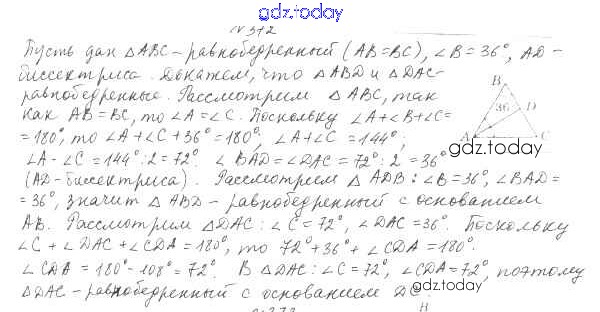 gdz.today
№ 372
Пусть дан △ABC – равнобедренный (AB=BC), ∠B = 36°, AD –
биссектриса. Докажем, что △ABD и △DAC –
равнобедренные. Рассмотрим △ABC, так
как AB = BC, то ∠A = ∠C. Поскольку ∠A + ∠B + ∠C =
= 180°, то ∠A + ∠C + 36° = 180°, ∠A + ∠C = 144°,
∠A - ∠C = 144° : 2 = 72° ∠BAD = ∠DAC = 72° : 2 = 36°
(AD - биссектриса). Рассмотрим △ ADB : ∠B = 36°, ∠BAD =
= 36°, значит △ABD – равнобедренный с основанием
AB. Рассмотрим △DAC : ∠C = 72°, ∠DAC = 36°. Поскольку
∠C + ∠DAC + ∠CDA = 180°, то 72° + 36° + ∠CDA = 180°.
∠CDA = 180° - 108° = 72°. В △DAC : ∠C = 72°, ∠CDA = 72°, поэтому
△DAC – равнобедренный с основанием DC.
B
36
D
A
C
gdz.today
gdz.today
H